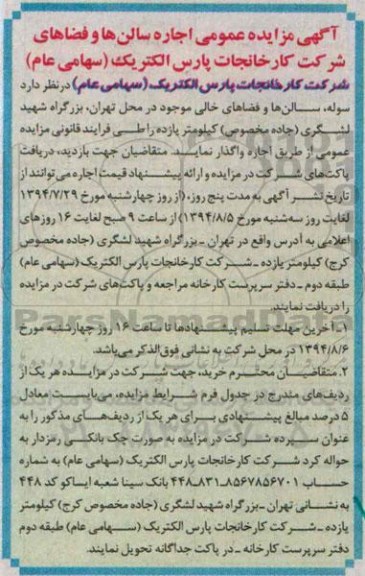 آگهی مزایده عمومی اجاره سالن ها و فضاهای
شرکت کارخانجات پارس الکتریک (سهامی عام)
شرکت کارخانجات پارس الکتریک (سهامی عام) درنظر دارد
سوله، سالن‌ها و فضاهای خالی موجود در محل تهران، بزرگراه شهید
لشگری (جاده مخصوص) کیلومتر یازده را طی فرایند قانونی مزایده
عمومی از طریق اجاره واگذار نماید. متقاضیان جهت بازدید، دریافت
پاکت‌های شرکت در مزایده و ارائه پیشنهاد قیمت اجاره می‌توانند از
تاریخ نشر آگهی به مدت پنج روز، (از روز چهارشنبه مورخ ۱۳۹۴/۷/۲۹
لغایت روز سه‌شنبه مورخ ۱۳۹۴/۸/۵) از ساعت ۹ صبح لغایت ۱۶ روزهای
اعلامی به آدرس واقع در تهران ـ بزرگراه شهید لشگری (جاده مخصوص
کرج) کیلومتر یازده ـ شرکت کارخانجات پارس الکتریک (سهامی عام)
طبقه دوم ـ دفتر سرپرست کارخانه مراجعه و پاکت‌های شرکت در مزایده
را دریافت نمایند.
۱ـ آخرین مهلت تسلیم پیشنهادها تا ساعت ۱۶ روز چهارشنبه مورخ
۱۳۹۴/۸/۶ در محل شرکت به نشانی فوق‌الذکر می‌باشد.
۲ـ متقاضیان محترم خرید، جهت شرکت در مزایده هر یک از
ردیف‌های مندرج در جدول فرم شرایط مزایده، می‌بایست معادل
۵ درصد مبالغ پیشنهادی برای هر یک از ردیف‌های مذکور را به
عنوان سپرده شرکت در مزایده به صورت چک بانکی رمزدار به
حواله کرد شرکت کارخانجات پارس الکتریک (سهامی عام) به شماره
حساب ۴۴۸ـ۸۳۱ـ۸۵۶۷۸۵۶۷۰۱ بانک سینا شعبه ایساکو کد ۴۴۸
به نشانی تهران ـ بزرگراه شهید لشگری (جاده مخصوص کرج) کیلومتر
یازده ـ شرکت کارخانجات پارس الکتریک (سهامی عام) طبقه دوم
دفتر سرپرست کارخانه ـ در پاکت جداگانه تحویل نمایند.
ParsNamadData